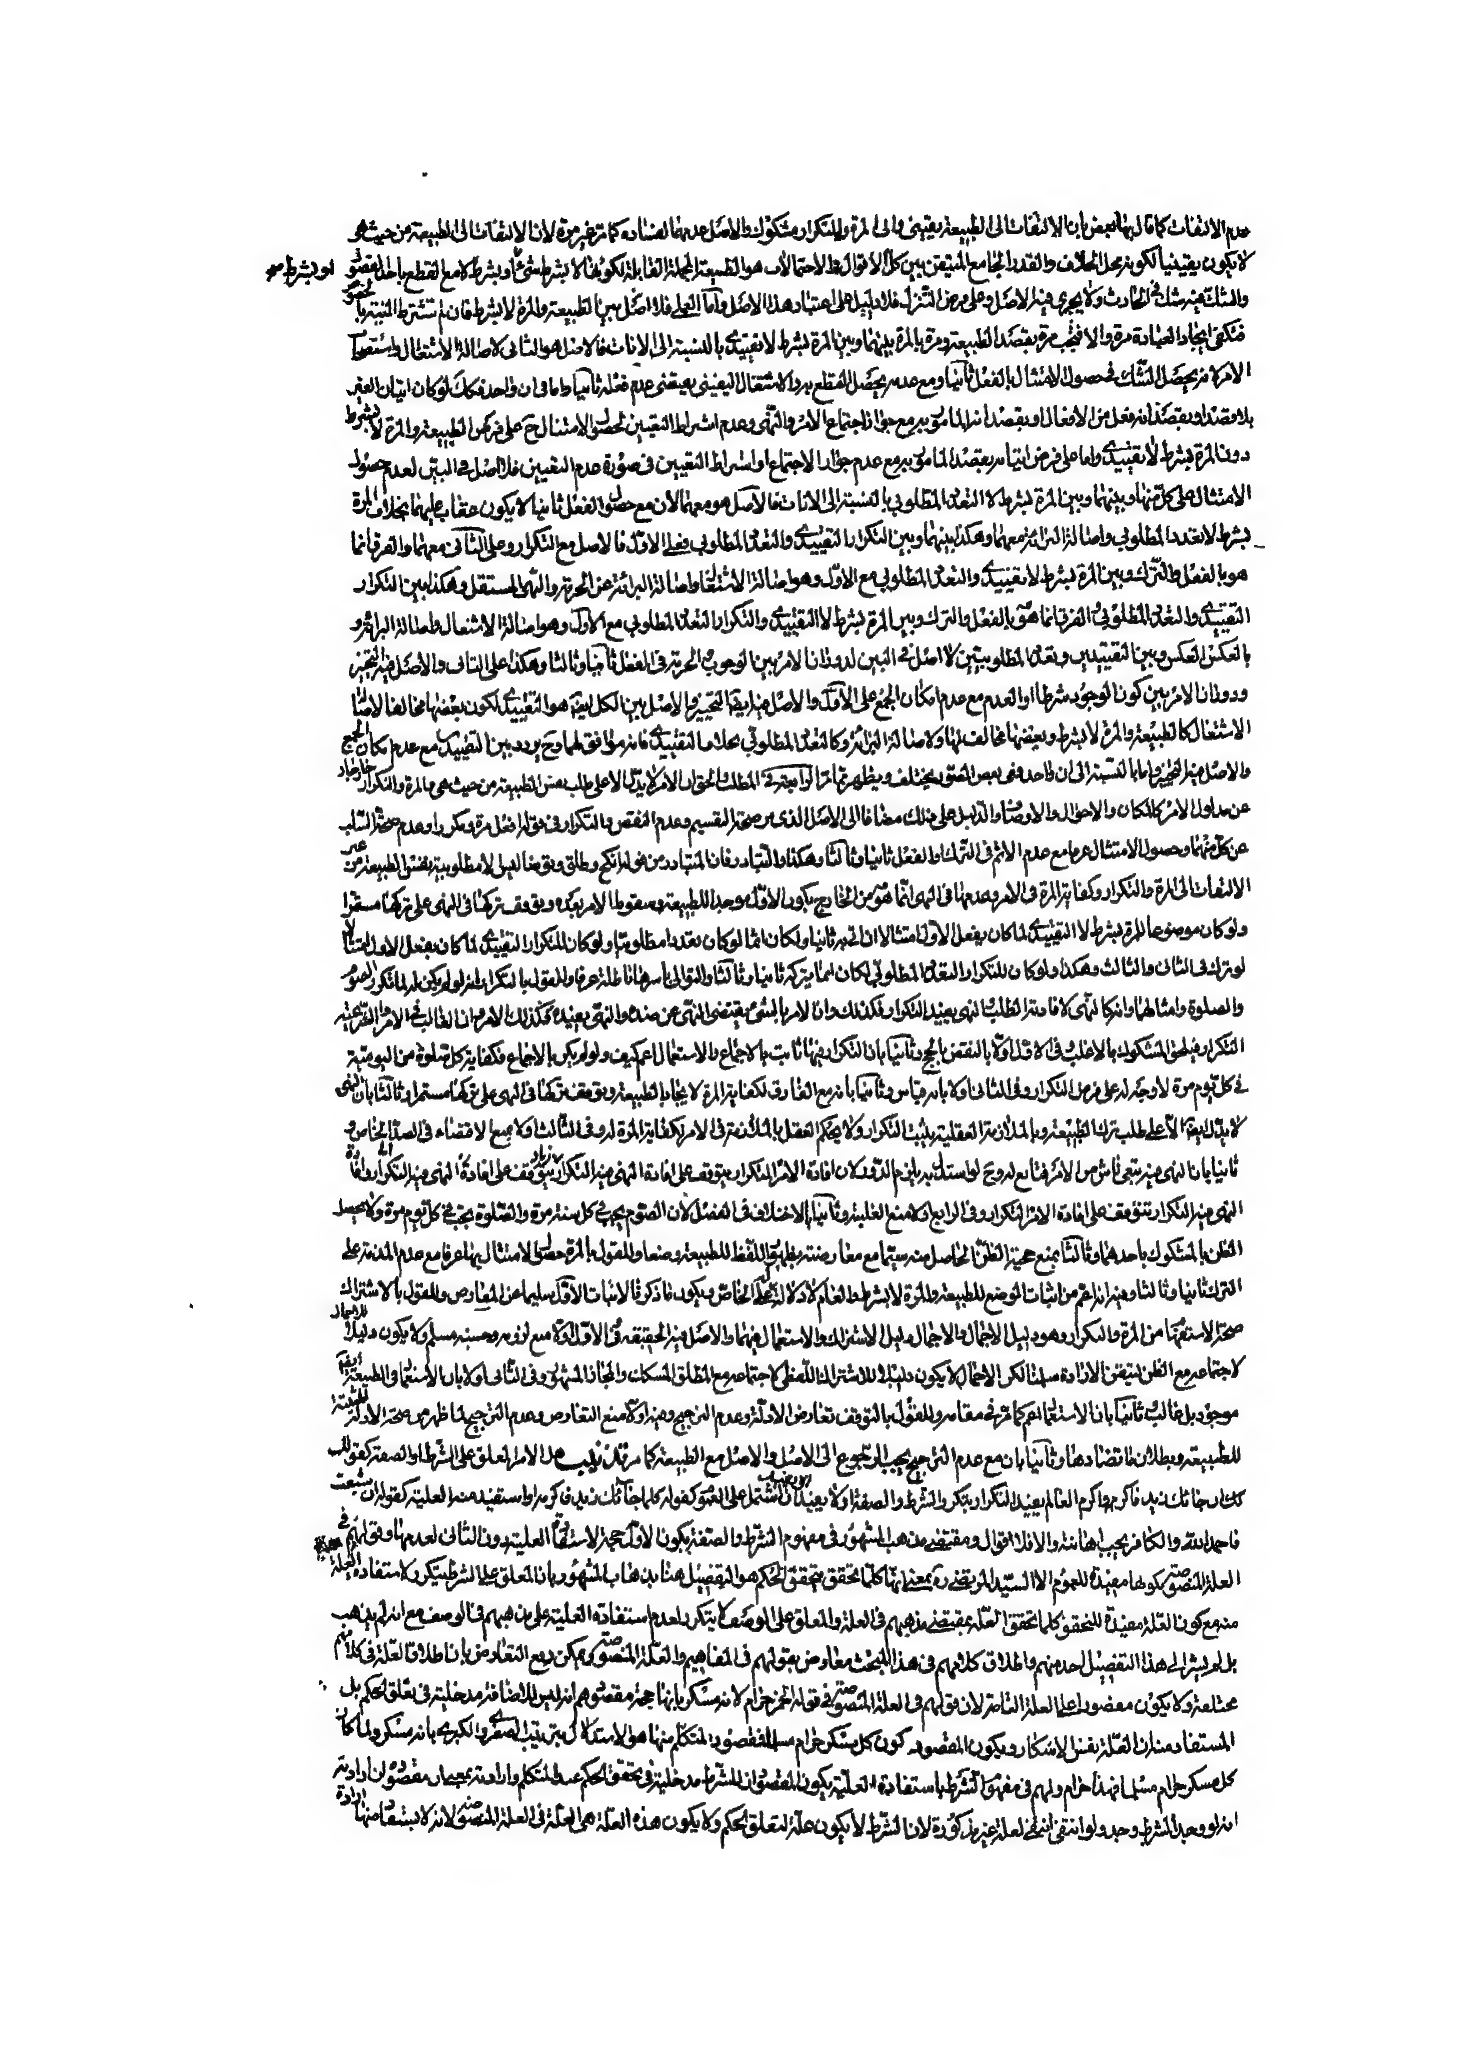 عدم الالتفات كما قال بها البعض بان الالتفات الى الطبيعة يقينى والى المرة والتكرار مشكوك والاصل عدمهما لفساده كما مر غير مرة لان الالتفات الى الطبيعة من حيث هى
لا يكون يقينيا لكونه محل الخلاف والقدر الجامع المتيقن بين كل الاقوال والاحتمالات هو الطبيعة المجملة القابلة لكونها لا بشرط شئ او بشرط لا مع القطع باحد الفصول
او بشرط
والشك فيه شك فى الحادث ولا يجرى فيه الاصل وعلى فرض التنزل فلا دليل على اعتبار هذا الاصل واما العملى فلا اصل بين الطبيعة والمرة لا بشرط فان لم تشترط النية
فتكفى ايجاد العبادة مرة والا فتجب مرة بقصد الطبيعة ومرة بالمرة بينهما وبين المرة بشرط لا تقييدى بالنسبة الى الانات فالاصل هو الثانى لاصالة الاشتغال واستصحاب
الامر لانه يحصل الشك فى حصول الامتثال بالفعل ثانيا ومع عدمه يحصل القطع به والاشتغال اليقينى يقتضى عدم فعله ثانيا واما فى ان واحد فكك لو كان اتيان الغير
بلا قصد او بقصد انه فعل من الافعال او بقصد انه المامور به مع جواز اجتماع الامر والنهى وعدم اشتراط التعيين لحصول الامتثال ح على فرض الطبيعة والمرة لا بشرط
دون المرة بشرط لا تقييدى واما على فرض اتيانه بقصد المامور به مع عدم جواز الاجتماع او اشتراط التعيين فى صورة عدم التعيين فلا اصل فى البين لعدم حصول
الامتثال على كل منها وبينهما وبين المرة بشرط لا التعدد المطلوبى بالنسبة الى الانات فالاصل هو معهما لان مع حصول الفعل ثانيا لا يكون عقاب عليهما بخلاف المرة
بشرط لا تعدد المطلوبى واصالة البرائة معهما وهكذا بينهما وبين التكرار التقييدى والتعدد المطلوبى فعلى الاول فالاصل مع التكرار وعلى الثانى معهما والفرق انما
هو بالفعل والترك وبين المرة بشرط لا تقييدى والتعدد المطلوبى مع الاول وهو اصالة الاشتغال واصالة البرائة عن الحرمة والنهى المستقل وهكذا بين التكرار
التقييدى والتعدد المطلوبى الفرق انما هو بالفعل والترك وبين المرة بشرط لا التقييدى والتكرار التعدد المطلوبى مع الاول وهو اصالة الاشتغال واصالة البرائة و
بالعكس العكس وبين التقييديين وتعدد المطلوبيين لا اصل فى البين لدوران الامر بين الوجوب والحرمة فى الفعل ثانيا وثالثا وهكذا على الثانى والاصل فيه التخيير
ودوران الامر بين كون الوجود شرطا او العدم مع عدم امكان الجمع على الاول والاصل فيه ايضا التخيير والاصل بين الكل ايضا هو التقييدى لكون بعضها مخالفا لاصالة
الاشتغال كالطبيعة والمرة لا بشرط وبعضها مخالف لها ولاصالة البرائة كالتعدد المطلوبى بخلاف التقييدى فانه موافق لهما وح يردد بين التقييدين مع عدم امكان الجمع
والاصل فيه التخيير واما بالنسبة الى ان واحد ففى بعض الصور يختلف ويظهر مما مر الرابعة فى المطلب والحق ان الامر لا يدل الا على طلب نفس الطبيعة من حيث هى والمرة والتكرار خارجان
عن مدلول الامر كالمكان والاحوال والاوصاف والدليل على ذلك مضافا الى الاصل الذى مر صحة التقسيم وعدم النقص والتكرار فى قوله افعل مرة ومكررا وعدم صحة السلب
عن كل منهما وحصول الامتثال عرفا مع عدم الاثم فى الترك والفعل ثانيا وثالثا وهكذا والتبادر فان المتبادر من قوله انكح وطلق ونحوهما ليس الا مطلوبية نفس الطبيعة من غير
الالتفات الى المرة والتكرار وكفاية المرة فى الامر وعدمها فى النهى انما هو من الخارج بكون الاول موجدا للطبيعة وسقوط الامر بعده ويتوقف تركها فى النهى على تركها مستمرا
ولو كان موضوعا للمرة بشرط لا التقييدى لما كان بفعل الاول امتثالا ان اتى به ثانيا ولكان اثما لو كان تعددا مطلوبيا ولو كان للتكرار التقييدى لما كان بفعل الاول امتثالا
لو ترك فى الثانى والثالث وهكذا ولو كان للتكرار التعدد المطلوبى لكان اثما بتركه ثانيا وثالثا والتوالى باسرها باطلة عرفا وللقول بالتكرار انه لو لم يكن له لما تكرر الصوم
والصلوة وامثالهما واشتراك النهى لافادة الطلب والنهى يفيد التكرار فكذلك وان الامر بالشئ يقتضى النهى عن ضده والنهى يفيده فكذلك الامر وان الغالب فى الاوامر الشرعية
التكرار فيلحق المشكوك بالاغلب وفى الاول اولا بالنقض بالحج وثانيا بان التكرار فيها ثابت بالاجماع والاستعمال اعم كيف ولو لم يكن بالاجماع فكفاية كل صلوة من اليومية
فى كل يوم مرة لا وجه له على فرض التكرار وفى الثانى اولا بانه قياس وثانيا بانه مع الفارق لكفاية المرة لايجاد الطبيعة ويتوقف تركها فى النهى على تركها مستمرا وثالثا بان النهى
لا يدل ايضا الا على طلب ترك الطبيعة وبالملازمة العقلية يثبت التكرار ولا يحكم العقل بالملازمة فى الامر لكفاية المرة له وفى الثالث اولا بمنع الاقتضاء فى الضد الخاص و
ثانيا بان النهى فيه تبعى ناش من الامر فتابع له وح لو استدل به يلزم الدور لان افادة الامر التكرار يتوقف على افادة النهى فيه التكرار وافادة
النهى فيه التكرار يتوقف على افادة الامر التكرار وفى الرابع اولا بمنع الغلبة وثانيا بالاختلاف فى الفصل لان الصوم يجب فى كل سنة مرة والصلوة يجب فى كل يوم مرة ولا يحصل
الظن بالمشكوك باحدهما وثالثا بمنع حجية الظن الحاصل منه سيما مع معارضته بظهور اللفظ للطبيعة وضعا وللقول بالمرة حصول الامتثال بها عرفا مع عدم المذمة على
الترك ثانيا وثالثا وفيه انه اعم من اثبات الوضع للطبيعة والمرة لا بشرط والعام لا دلالة له على الخاص ويكون ما ذكر لاثبات الاول سليما عن المعارض وللقول بالاشتراك
صحة الاستفهام من المرة والتكرار وهو دليل الاجمال والاجمال دليل الاشتراك والاستعمال فيهما والاصل فيه الحقيقة وفى الاول اولا منع لزومه وحسنه مسلم ولا يكون دليلا للاجمال
لاجتماعه مع الظن ليتيقن الارادة سلمنا لكن الاجمال لا يكون دليلا للاشتراك اللفظى لاجتماعه مع المطلق المشكك والمجاز المشهور وفى الثانى اولا بان الاستعمال فى الطبيعة ايضا
موجود بل غالب وثانيا بان الاستعمال اعم كما مر فى مقامه وللقول بالتوقف تعارض الادلة وعدم الترجيح وفيه اولا منع التعارض وعدم الترجيح لما ظهر من صحة الادلة المثبتة
للطبيعة وبطلان ما تضادها وثانيا بان مع عدم الترجيح يجب الرجوع الى الاصل والاصل مع الطبيعة كما مر تذنيب هل الامر المعلق على الشرط او الصفة كقولك
ان جائك زيد فاكرم واكرم العالم يفيد التكرار بتكرر الشرط والصفة او لا يفيد ان اشتمل على العموم كقوله كلما جائك زيد فاكرمه او استفيد منه العلية كقوله ان شبعت
فاحمد الله والكافر يجب اهانته والا فلا اقوال ومقتضى مذهب المشهور فى مفهوم الشرط والصفة يكون الاول حجة لاستفادة العلية دون الثانى لعدمها وقولهم فى
العلة المنصوصة بكونها مفيدة للعموم الا السيد المرتضى ره بمعنى انها كلما تحقق يتحقق الحكم هو التفصيل هنا بذهاب المشهور بان المعلق على الشرط يتكرر لاستفادة العلية
منه مع كون العلة مفيدة للتحقق كلما تحقق العلة بمقتضى مذهبهم فى العلة والمعلق على الوصف لا يتكرر لعدم استفادة العلية على مذهبهم فى الوصف مع انه لم يذهب
بل لم يشر الى هذا التفصيل احد منهم واطلاق كلامهم فى هذا البحث معارض بقولهم فى المفاهيم والعلة المنصوصة ويمكن رفع التعارض بان اطلاق العلة فى كلامهم
مختلفة ولا يكون مقصودا على العلة التامة لان قولهم فى العلة المنصوصة فى قوله الخمر حرام لانه مسكر بانها حجة مقصودهم انه ليس للاضافة مدخلية فى تعلق الحكم بل
المستفاد منه ان العلة نفس الاسكار ويكون المقصود كون كل مسكر حرام مسلما فمقصود المتكلم منها هو الاستدلال بترتيب الصغرى والكبرى بانه مسكر ولما كان
كل مسكر حرام مسلما فهذا حرام ولهم فى مفهوم الشرط باستفادة العلية يكون المقصود ان للشرط مدخلية فى تحقق الحكم عند المتكلم وارادته بمعنى ان مقصوده ان ارادته
انه لو وجد الشرط وجد ولو انتفى انتفى لعلة غير مذكورة لان الشرط لا يكون علة لتعلق الحكم ولا يكون هذه العلة هى العلة فى العلة المنصوصة لانه لا يستفاد منها ارادة